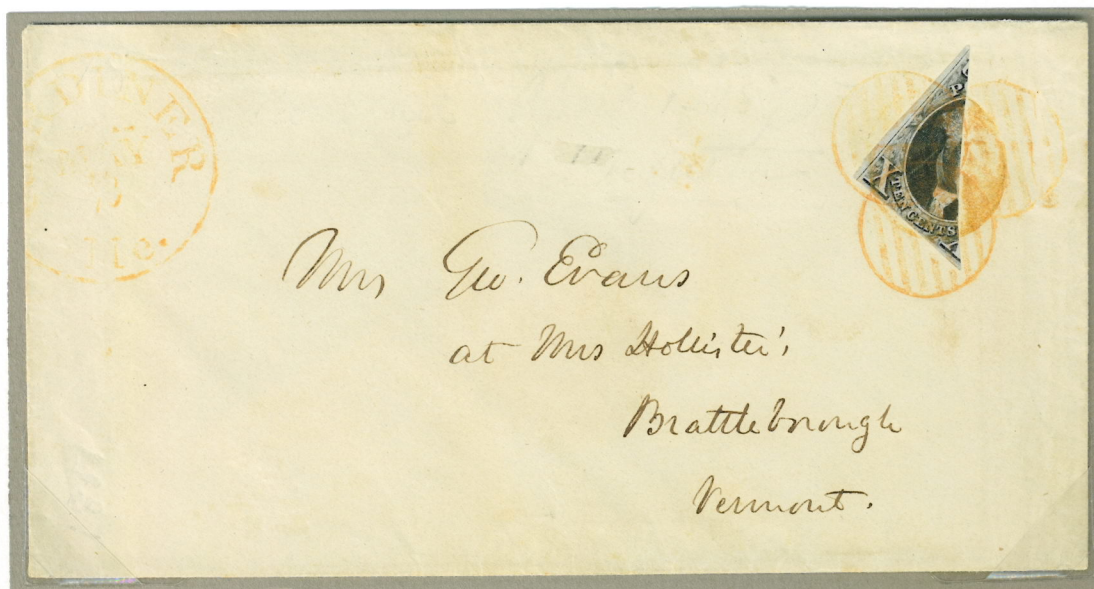 GARDINER
MAY
Me.
X
TEN CENTS
X
Mrs Geo. Evans
at Mrs Hollister's
Brattleborough
Vermont.